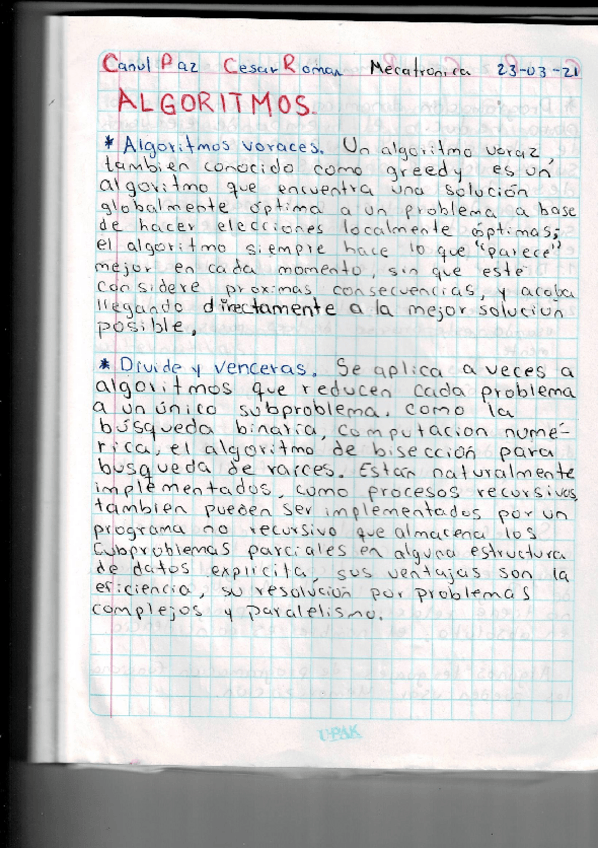 Canul Paz Cesar Roman Mecatronica 23-03-21
ALGORITMOS.
* Algoritmos voraces. Un algoritmo voraz,
tambien conocido como greedy es un
algoritmo que encuentra una solución
globalmente óptima a un problema a base
de hacer elecciones localmente óptimas;
el algoritmo siempre hace lo que "parece"
mejor en cada momento, sin que este
considere proximas consecuencias, y acaba
llegando directamente a la mejor solución
posible.
* Divide y venceras. Se aplica a veces a
algoritmos que reducen cada problema
a un único subproblema, como la
búsqueda binaria, computacion numé-
rica, el algoritmo de bisección para
busqueda de raíces. Estan naturalmente
implementados, como procesos recursivos,
tambien pueden ser implementados por un
programa no recursivo que almacena los
subproblemas parciales en alguna estructura
de datos explicita, sus ventajas son la
eficiencia, su resolución por problemas
complejos y paralelismo.
UPAK